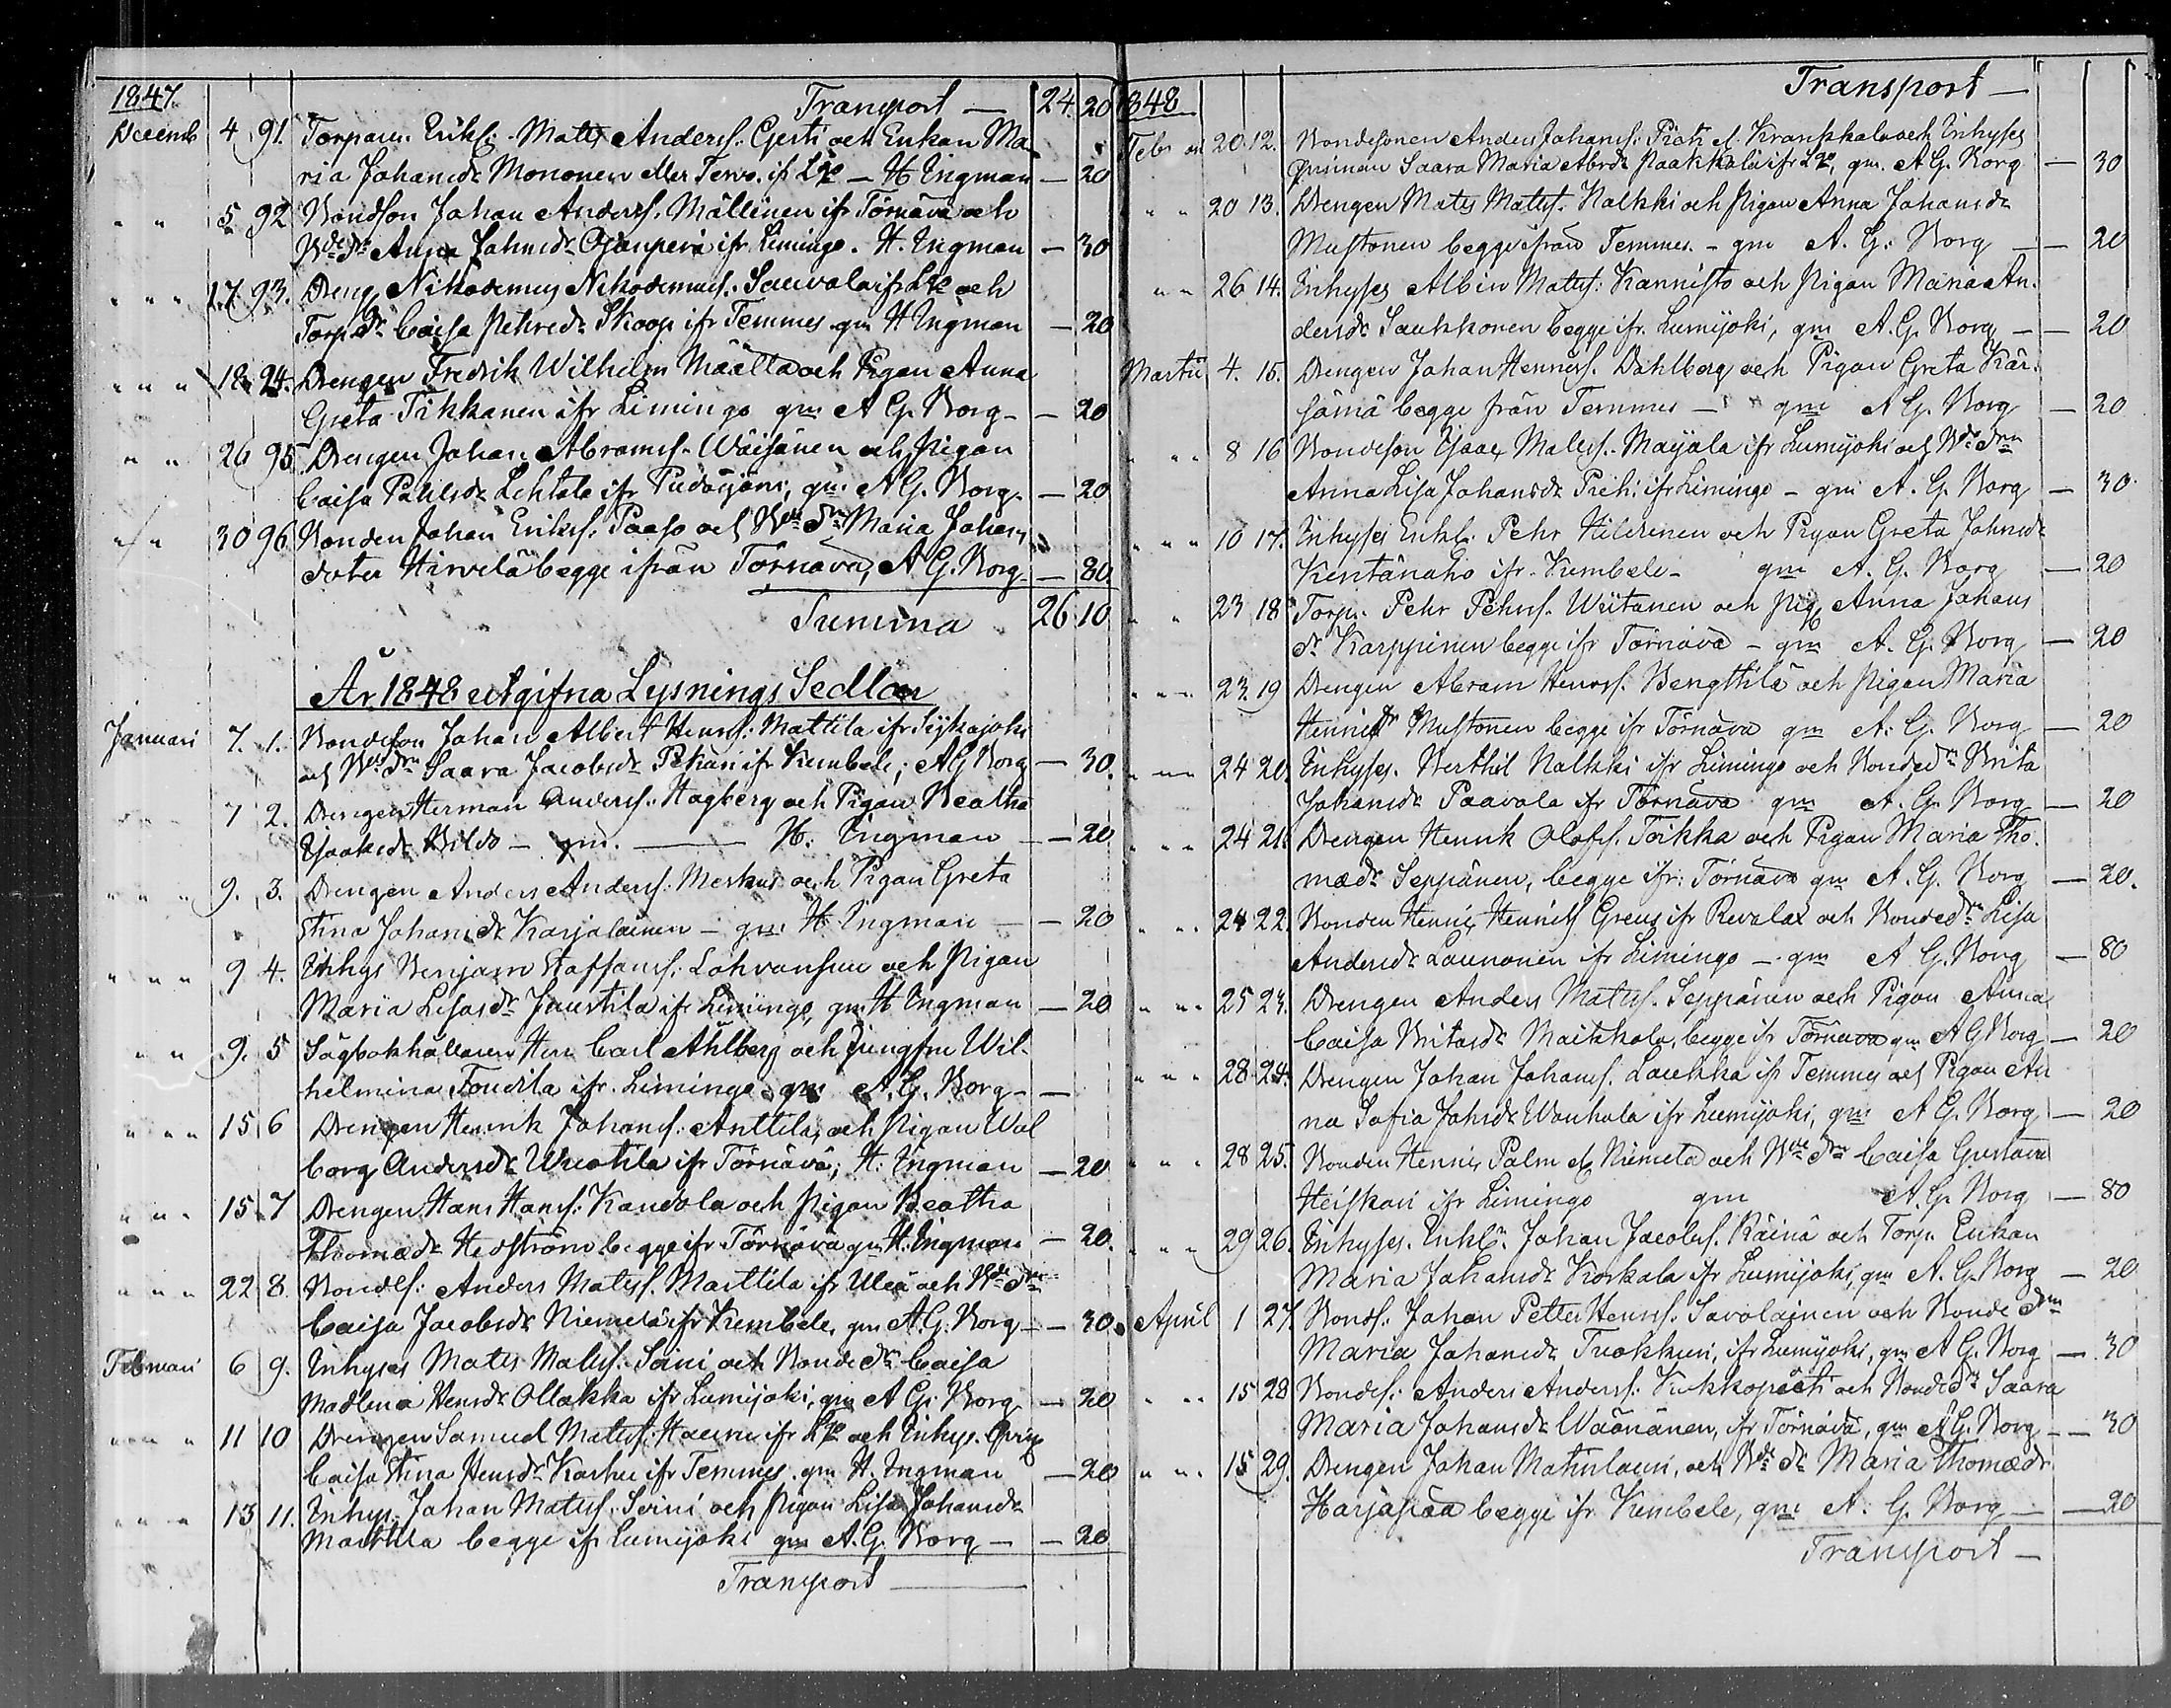 1847. Transport — 24. 20
Decemb 4 91. Torparen Eriks: Mats Anders. Gerti och Enkan Ma
ria Johansdr Mononen eller Tervo. ifr Lgo — H Ingman — 20
" " 5 92 Bondson Johan Anders. Mällinen ifr Törnävä och
Bde dr Anna Johnsdr Ojanperä ifr Limingo. H. Ingman — 30
" " " 17 93. Dreng Nikodemus Nikodemus. Sauvola ifr Lgo och
Torp. dr Caisa Pehrsdr Skoop ifr Temmes gm H Ingman — 20
" " " 18 94. Drengen Fredrik Wilhelm Määttä och Pigan Anna
Greta Tikkanen ifr Limingo gm A G. Borg — — 20
" " 26 95 Drengen Johan Abrams. Wäisänen och Pigan
Caisa Påhlsdr Lehtola ifr Pudasjärvi, gm A G. Borg — 20
" " 30 96 Bonden Johan Eriks. Paaso och Bde Dr Maria Johans
doter Hirvelä begge ifrån Törnävä, A. G. Borg — 80
Summa 26 10
År 1848 utgifna Lysnings Sedlar
Januari 7. 1. Bondeson Johan Albert Henrs: Mattila ifr Sijkajoki
och Bde dr Saara Jacobsdr Pekuri ifr Kembele; A G Borg — 30.
" " 7 2. Drengen Herman Anders. Hagberg och Pigan Beatha
Isaksdr Wilds — gm. — H. Ingman — 20
" " " 9. 3. Drengen Anders Anders. Merkus och Pigan Greta
Stina Johansdr Karjalainen — gm H Ingman — — 20
" " " 9 4. Inhys Benjam Staffans. Lohvansuu och Pigan
Maria Lisasdr Juustila ifr Limingo, gm H Ingman — 20
" " 9. 5 Sågbokhållaren Herr Carl Ahlberg och Jungfru Wil-
helmina Toudila ifr. Limingo gm A. G. Borg — —
" " " 15 6 Drengen Henrik Johans. Anttila, och Pigan Wal
borg Andersdr Wuotila ifr Törnävä; H. Ingman — 20
" " " 15 7 Drengen Hans Hans. Kandola och Pigan Beatha
Thomædr Hedström begge ifr Törnävä gm H. Ingman — 20.
" " " 22 8. Bondes: Anders Mats. Marttila ifr Uleå och Bde Dr
Caisa Jacobsdr Niemelä ifr Kembele, gm A. G. Borg — — 30.
Februari 6 9. Inhyses Mats Mats. Soini och Bonde dr Caisa
Madlena Hensdr Ollakka ifr Lumijoki, gm A G. Borg — 20
" " " 11 10 Drengen Samuel Mats. Hauru ifr Lgo och Inhys. Qvig
Caisa Stina Hensdr Karhu ifr Temmes. gm H. Ingman — 20
" " " 13 11. Inhys. Johan Mats. Soini och Pigan Lisa Johansdr
Marttila begge ifr Lumijoki gm A. G. Borg — — 20
Transport —
1848 Transport —
Febr. 20. 12. Bondesonen Anders Johans. och Inhyses
Qvinnan Saara Maria Abrdr Paakkola ifr Lgo, gm. A G. Borg — 30
" " 20 13. Drengen Mats Mats. Kalkki och Pigan Anna Johansdr
Mustonen begge ifrån Temmes. — gm A. G. Borg — — 20
" " 26 14. Inhyses Albin Mats: Kannisto och Pigan Maria An.
dersdr Saukkonen begge ifr. Lumijoki, gm A. G. Borg — — 20
Martii 4. 15. Drengen Johan Henners. Dahlberg och Pigan Greta Kär.
sämä begge från Temmes — gm A G. Borg — 20
" " 8 16 Bondeson Isac Mats. Majala ifr Lumijoki och Bde Drn
Anna Lisa Johansdr Pieti ifr Limingo — gm A. G. Borg — 30.
" " " 10 17. Inhyses Enkl. Pehr Hildenen och Pigan Greta Johnsdr
Kentänaho ifr. Kembele — gm A. G. Borg — 20
" " 23 18 Torp. Pehr Pehrs. Wiitanen och Pig Anna Johans
dr Karppinen begge ifr Törnävä — gm A. G. Borg — 20
" " " 23 19 Drengen Abram Henrs. Bengttilä och Pigan Maria
Hennidr Mustonen begge ifr Törnävä gm A. G. Borg — 20
" " " 24 20 Inhyses. Berthil Kalkki ifr Limingo och Bondedr Brita
Johansdr Paavola ifr Törnävä gm A. G. Borg — 20
" " " 24 21. Drengen Henrik Olofs. Toikka och Pigan Maria Tho.
mædr Seppänen, begge ifr: Törnävä gm A. G. Borg — 20.
" " " 24 22. Bonden Hennis Hennis Greus ifr Revolax och Bondedr Lisa
Andersdr Launonen ifr Limingo — gm A G. Borg — 80
" " " 25 23. Drengen Anders Mats. Seppänen och Pigan Anna
Caisa Britasdr Maikkola, begge ifr Törnävä gm A G Borg — 20
" " " 28 24. Drengen Johan Johans. Laukka ifr Temmes och Pigan An
na Sofia Johsdr Wanhala ifr Lumijoki, gm A G. Borg — 20
" " " 28 25. Bonden Hennis Palm el. Niemelä och Bde Dr Caisa Gustava
Heiskari ifr Limingo gm A. G. Borg — 80
" " " 29 26. Inhyses. Enkl. Johan Jacobs. Räinä och Torp. Enkan
Maria Johansdr Korkala ifr Lumijoki, gm A. G. Borg — 20
April 1 27. Bonds. Johan Petter Henrs. Savolainen och Bonde Drn
Maria Johansdr Tuokkuri, ifr Lumijoki, gm A G. Borg — 30
" " 15 28 Bondes. Anders Anders: och Bondedr Saara
Maria Johansdr Wäänänen, ifr Törnävä, gm A G. Borg — — 30
" " " 15 29. Drengen Johan Matinlauri, och Bde Dr Maria Thomædr
Harjapää begge ifr Kembele, gm A. G. Borg — — 20
Transport —